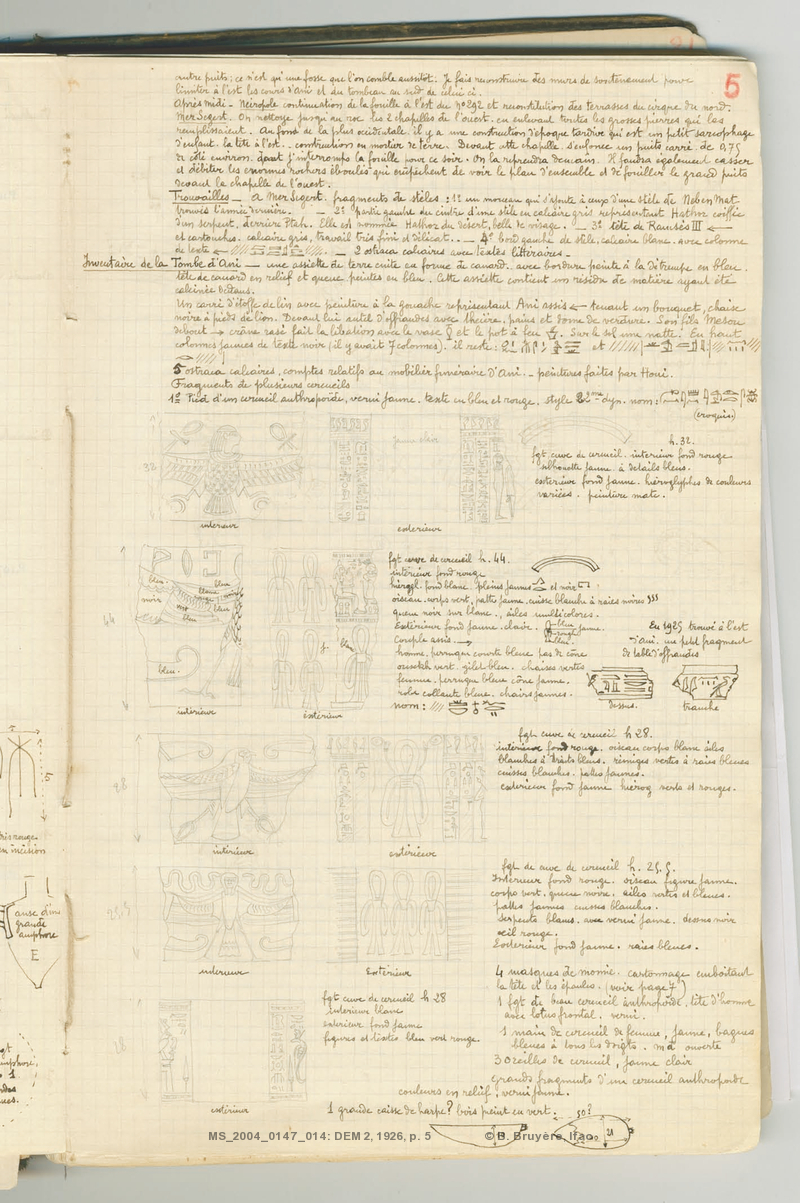 5
autre puits; ce n'est qu'une fosse que l'on comble aussitôt. Je fais reconstruire des murs de soutènement pour
limiter à l'est les cours d'Ani et du tombeau au sud de celui ci.
Après midi - Nécropole continuation de la fouille à l'est du nº 292 et reconstitution des terrasses du cirque du nord.
MerSegert. On nettoye jusqu'au roc les 2 chapelles de l'ouest. en enlevant toutes les grosses pierres qui les
remplissaient. Au fond de la plus occidentale. il y a une construction d'époque tardive qui est un petit sarcophage
d'enfant. la tête à l'est. construction en mortier de terre. Devant cette chapelle s'enfonce un puits carré. de 0,75
de côté environ. dont j'interromps la fouille pour ce soir. On la reprendra demain. Il faudra également casser
et débiter les énormes rochers éboulés qui empêchent de voir le plan d'ensemble et de fouiller le grand puits
devant la chapelle de l'ouest.
Trouvailles - à MerSegert. fragments de stèles : 1º un morceau qui s'ajoute à ceux d'une stèle de Neben Mat.
trouvés l'année dernière. - 2º partie gauche du cintre d'une stèle en calcaire gris représentant Hathor coiffée
d'un serpent, derrière Ptah. Elle est nommée Hathor du désert, belle de visage. - 3º tête de Ramsès III ←
et cartouches. calcaire gris, travail très fini et délicat. - 4º bord gauche de stèle. calcaire blanc. avec colonne
de texte - 2 ostraca calcaires avec textes littéraires -
Inventaire de la Tombe d'Ani - une assiette de terre cuite en forme de canard. avec bordure peinte à la détrempe en bleu.
tête de canard en relief et queue peintes en bleu. Cette assiette contient un résidu de matière ayant été
calcinée dedans.
Un carré d'étoffe de lin avec peinture à la gouache représentant Ani assis ← tenant un bouquet, chaise
noire à pieds de lion. Devant lui autel d'offrandes avec théière, pains et botte de verdure. Son fils Mesou
debout → crâne rasé fait la libation avec le vase et le pot à feu. Sur le sol une natte. En haut
colonnes jaunes de texte noir (il y avait 7 colonnes). il reste : et
5 ostraca calcaires, comptes relatifs au mobilier funéraire d'Ani. - peintures faites par Houi.
Fragments de plusieurs cercueils
1º Pied d'un cercueil anthropoïde, verni jaune. texte en bleu et rouge. style dyn. nom :
(croquis)
32
jaune clair
h. 32.
fgt. cuve de cercueil. intérieur fond rouge
silhouette jaune à détails bleus.
extérieur fond jaune. hiéroglyphes de couleurs
variées. peinture mate.
intérieur
extérieur
44
bleu
noir
bleu
blanc
rouge
bleu
bleu
bleu
fgt cuve de cercueil h. 44.
intérieur fond rouge
hiérogl. fond blanc. pleins jaunes et noir
oiseau. corps vert, patte jaune, cuisse blanche à raies noires
queue noir sur blanc. ailes multicolores.
Extérieur fond jaune. clair.
couple assis. →
homme, perruque courte bleue pas de cône
ousekh vert gilet bleu. chaises vertes
femme, perruque bleue cône jaune.
robe collante bleue. chairs jaunes.
nom :
intérieur
extérieur
En 1925 trouvé à l'est
d'Ani. un petit fragment
de table d'offrandes
dessus.
tranche
28
fgt cuve de cercueil h 28.
intérieur fond rouge. oiseau corps blanc ailes
blanches à traits bleus. rémiges vertes à raies bleues
cuisses blanches. pattes jaunes.
extérieur fond jaune hiérog verts et rouges.
intérieur
extérieur
25,5
fgt de cuve de cercueil h. 25,5.
Intérieur fond rouge. oiseau figure jaune.
corps vert. queue noire. ailes vertes et bleues.
pattes jaunes cuisses blanches.
serpents blancs. avec verni jaune. dessus noir
œil rouge.
Extérieur fond jaune. raies bleues.
intérieur
Extérieur
4 masques de momie. cartonnage emboîtant
la tête et les épaules. (voir page 7)
1 fgt de beau cercueil anthropoïde, tête d'homme
avec lotus frontal, verni.
1 main de cercueil de femme, jaune, bagues
bleues à tous les doigts. main ouverte
3 oreilles de cercueil, jaune clair
grands fragments d'un cercueil anthropoïde
couleurs en relief, verni jaune.
28
fgt cuve de cercueil h 28
Intérieur blanc
extérieur fond jaune
figures et textes bleu vert rouge.
extérieur
1 grande caisse de harpe? bois peint en vert.
50?
21
B
en incision
anse d'une
grande
amphore
E
MS_2004_0147_014: DEM 2, 1926, p. 5
© B. Bruyère, Ifao